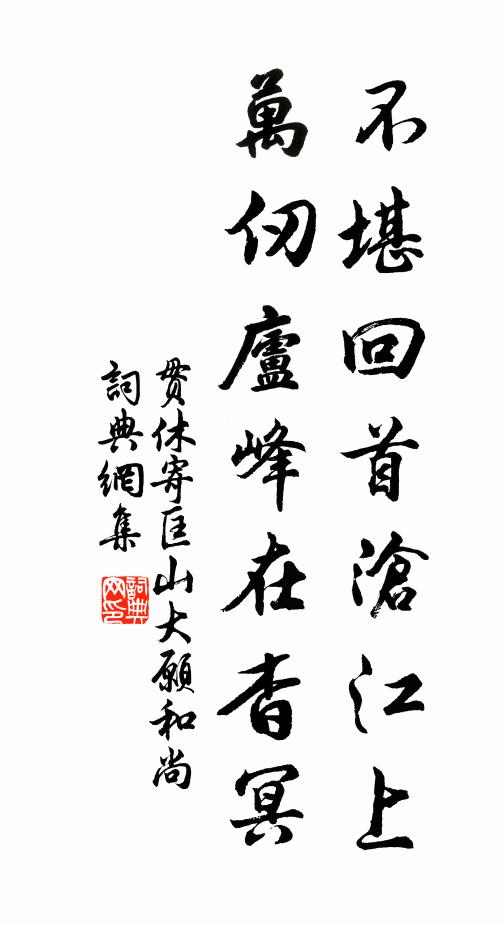 不堪回首滄江上
萬仞廬峰在杳冥
貫休寄匡山大願和尚
詞典網集
詞典网印